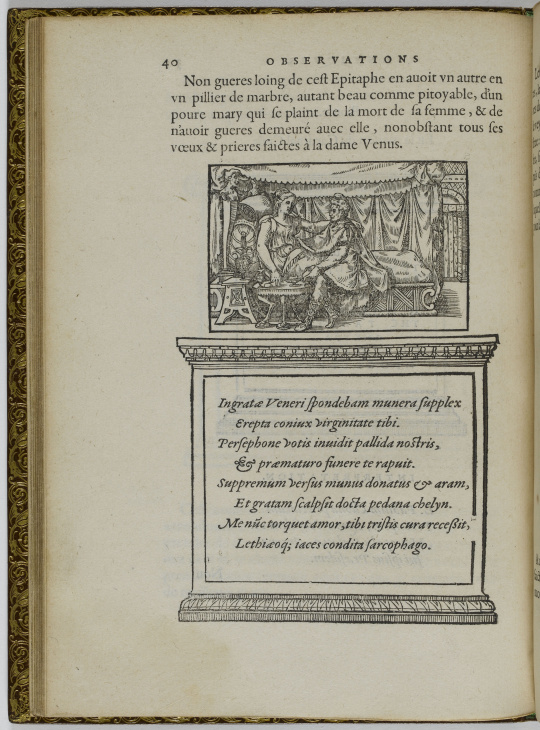 40 OBSERVATIONS
Non gueres loing de cest Epitaphe en auoit vn autre en
vn pillier de marbre, autant beau comme pitoyable, d'un
poure mary qui se plaint de la mort de sa femme, & de
n'auoir gueres demeuré auec elle, nonobstant tous ses
vœux & prieres faictes à la dame Venus.
Ingratæ Veneri spondebam munera supplex
Erepta coniux virginitate tibi.
Persephone votis inuidit pallida nostris,
& præmaturo funere te rapuit.
Supremum versus munus donatus & aram,
Et gratam scalpsit docta pedana chelyn.
Me nũc torquet amor, tibi tristis cura receßit,
Lethæoq; iaces condita sarcophago.